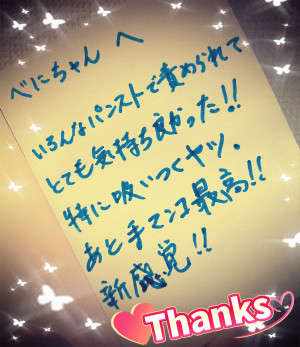 べにちゃん へ
いろんなパンストで責められて
とても気持ち良かった!!
特に吸いつくヤツ。
あと手マンコ最高!!
新感覚!!
Thanks